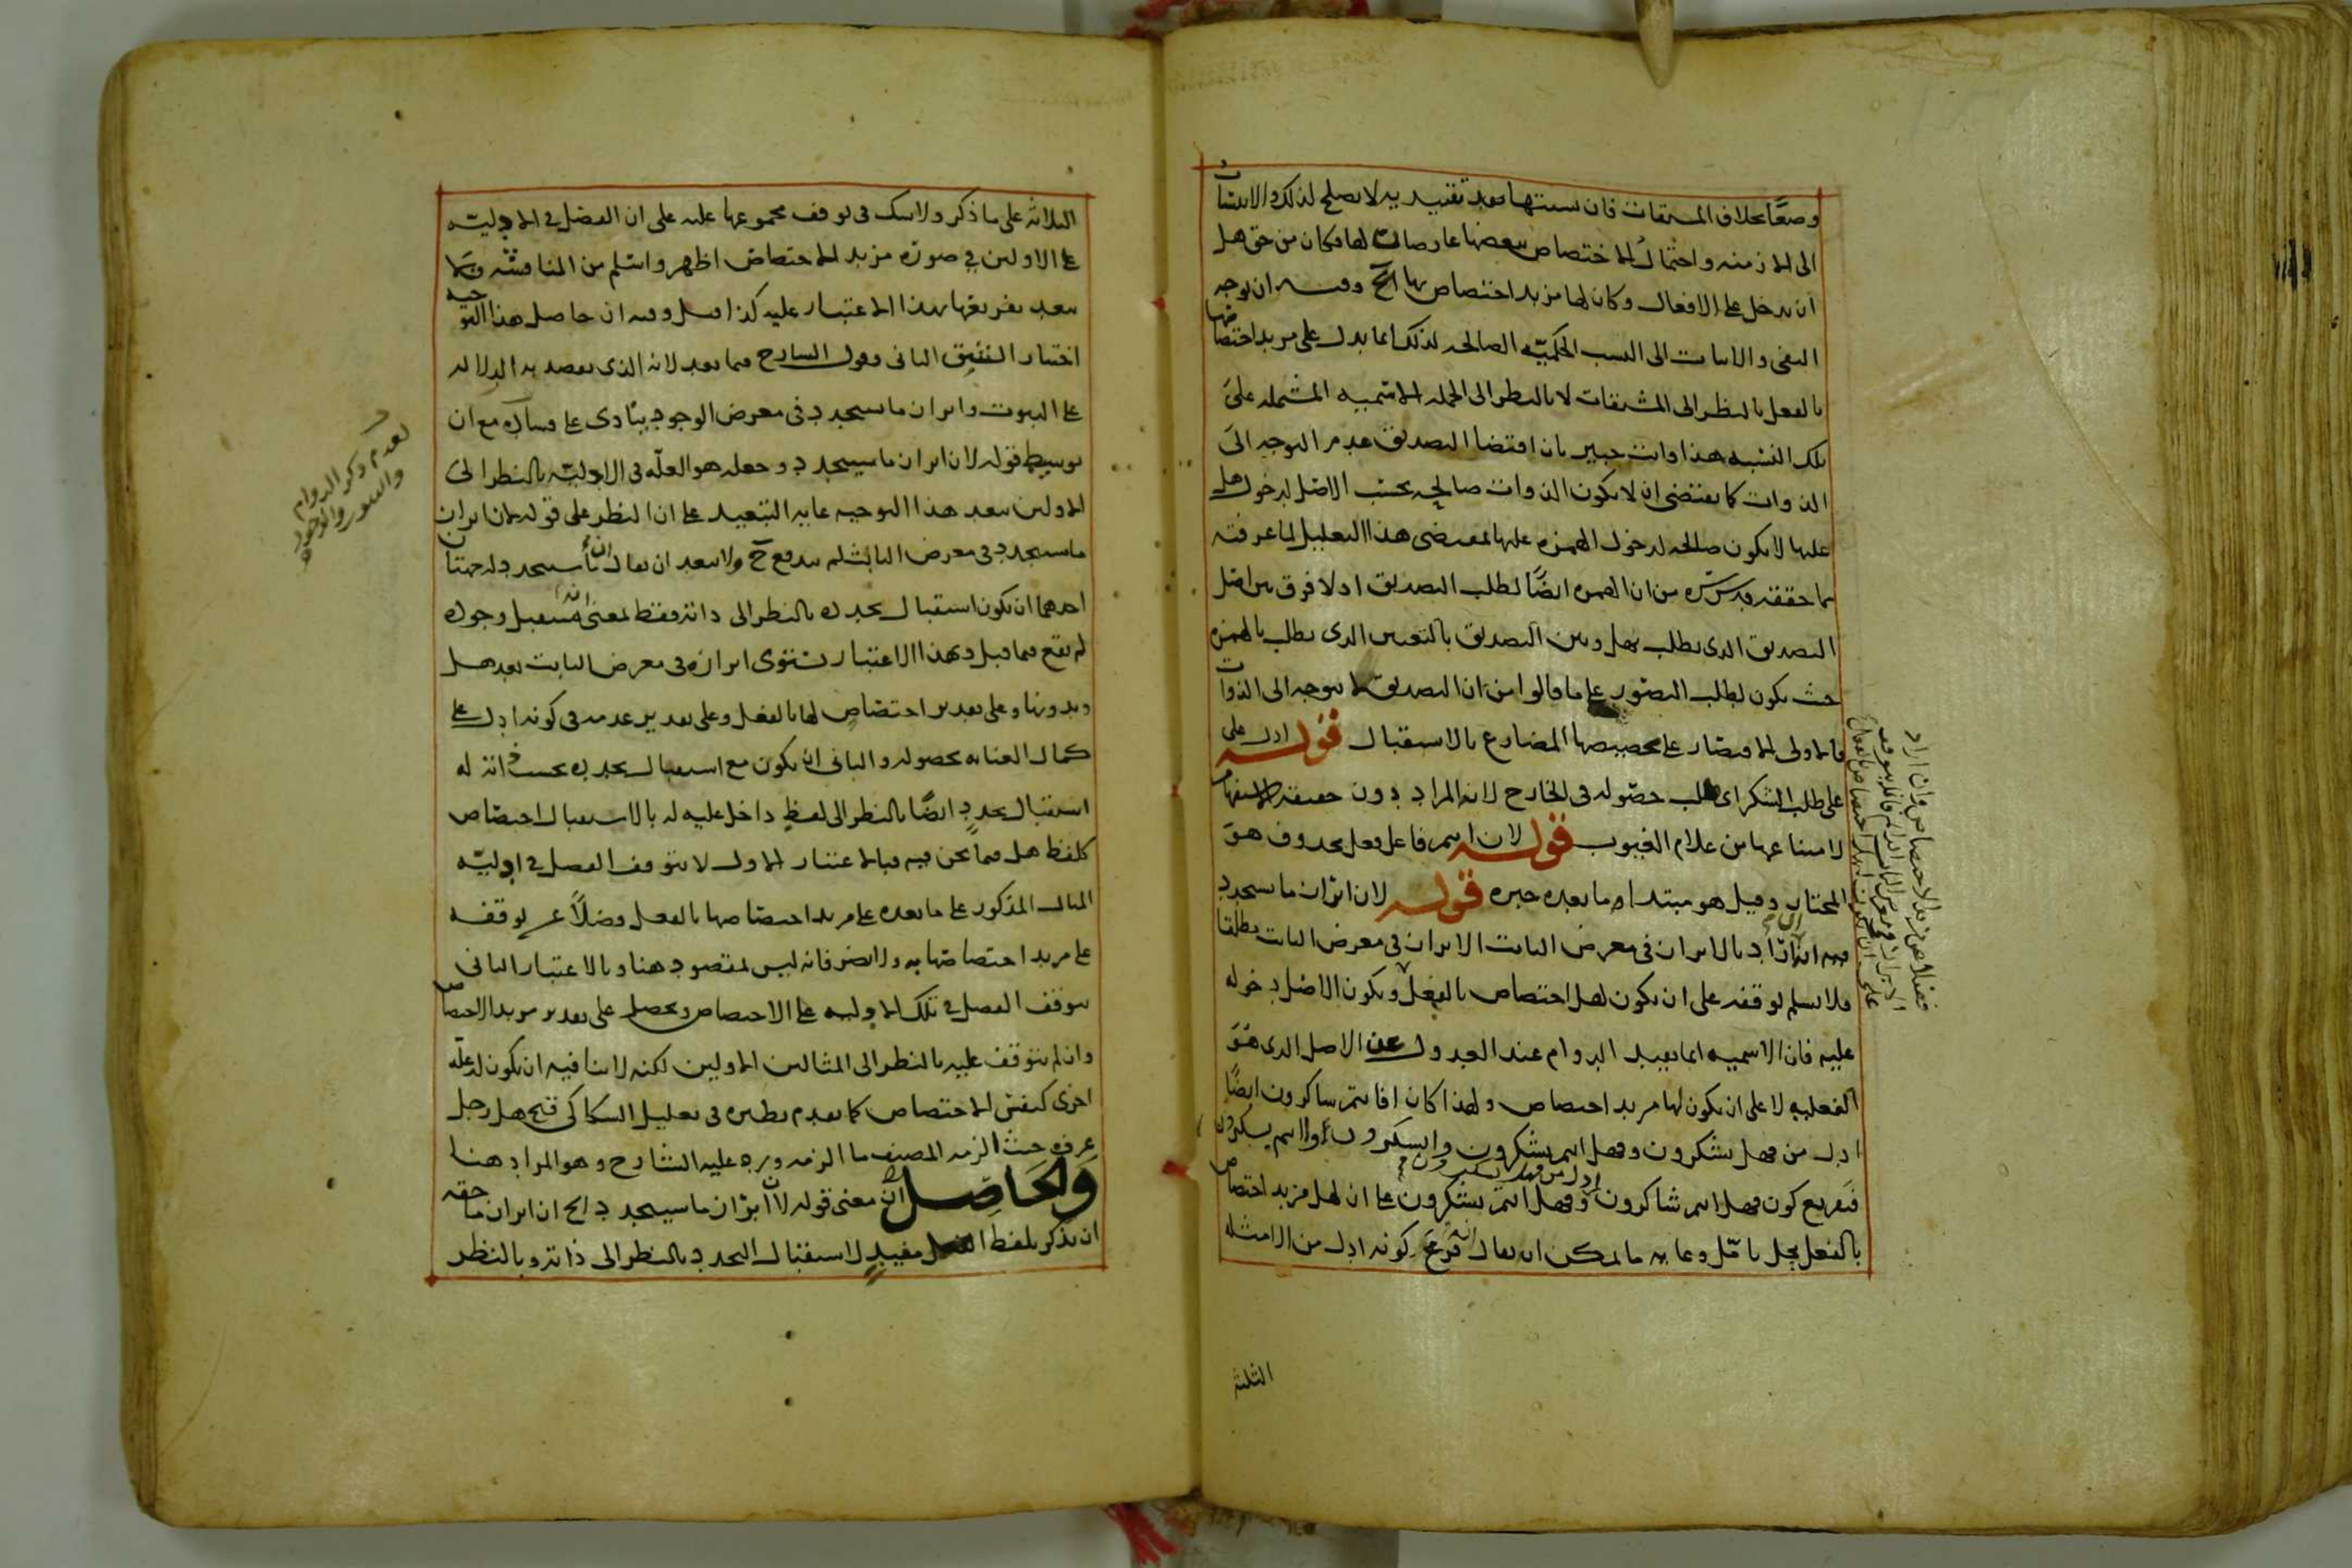 وصفا بخلاف المشتقات فان نسبتها بعد تقييدية لا يصلح لذلك والانتسات
الى الازمنة واحتمال الاختصاص ببعضها عارضان لها فكان من حق هل
ان يدخل على الافعال وكان لها مزيد اختصاص بها الخ وفيه ان توجه
النفى والاثبات الى النسب الحكمية الصالحة لذلك انما يدل على مزيد اختصاصها
بالفعل بالنظر الى المشتقات لا بالنظر الى الجملة الاسمية المشتملة على
تلك النسبة هذا وانت خبير بان اقتضا التصديق عدم التوجه الى
الذوات كما يقتضى ان لا يكون الذوات صالحة بحسب الاصل لدخول هل
عليها لا يكون صالحة لدخول الهمزة عليها بمقتضى هذا التعليل لما عرفته
مما حققه قدس سره من ان الهمزة ايضا لطلب التصديق اذ لا فرق بين اصل
التصديق الذى يطلب بهل وبين التصديق بالتعيين الذى يطلب بالهمزة
حيث يكون لطلب التصور على ما قالوا من ان التصديق لا يتوجه الى الذوات
فالاولى الاقتصار على تخصيصها المضارع بالاستقبال قوله ادل على
على طلب الشكر اى طلب حصوله فى الخارج لانه المراد دون حقيقة الاستفهام
لامتناعها من علام الغيوب قوله لان اسم فاعل فعل محذوف هو
المختار وقيل هو مبتدا وما بعده خبره قوله لان ابراز ما سيتجدد
فيه انه ان اراد بالابراز فى معرض الثابت الابراز فى معرض الثابت مطلقا
فلا يسلم توقفه على ان يكون لهل اختصاص بالفعل ويكون الاصل دخوله
عليه فان الاسمية انما يفيد الدوام عند العدول عن الاصل الذى هو
الفعلية لا على ان يكون لها مزيد اختصاص ولهذا كان افانتم شاكرون ايضا
ادل من فهل تشكرون وفهل انتم تشكرون
فتفريع كون فهل انتم شاكرون ادل من فهل تشكرون وفهل انتم تشكرون على ان لهل مزيد اختصاص
بالفعل محل تامل وغاية ما يمكن ان يقال انه فرع كونه ادل من الامثلة
فضلا عن مزيد الاختصاص وان اراد
الثلثة
الثلاثة على ما ذكر ولا شك فى توقف مجموعها عليه على ان الفضل فى الادلية
على الاولين فى صورة مزيد الاختصاص اظهر واسلم من المناقشة
بعد تفريعها بهذا الاعتبار عليه كذا قيل وفيه ان حاصل هذا التوجيه
اختيار الشق الثانى وقول الشارح فيما بعد لانه الذى يقصد به الدلالة
على الثبوت وابراز ما سيتجدد فى معرض الوجود ينادى على فساده مع ان
توسيط قوله لان ابراز ما سيتجدد وجعله هو العلة فى الادلية بالنظر الى
الاولين يبعد هذا التوجيه غاية التبعيد على ان النظر على قوله لان ابراز
ما سيتجدد فى معرض الثابت لم يندفع ح ولا يبعد ان يقال ان ما سيتجدد له جهتان
احدهما ان يكون استقبال تجدده بالنظر الى ذاته فقط بمعنى انه مستقبل وجوده
لم يقع فيما قبل وبهذا الاعتبار يستوى ابرازه فى معرض الثابت بعد هل
وبدونها وعلى تقدير اختصاص لها بالفعل وعلى تقدير عدمه فى كونه ادل على
كمال العناية بحصوله والثانى ان يكون مع استقبال تجدده بحسب ذاته له
استقبال تجدد ايضا بالنظر الى لفظ داخل عليه له بالاستقبال اختصاص
كلفظ هل فيما نحن فيه فبالاعتبار الاول لا يتوقف الفضل فى ادلية
المثال المذكور على ما بعده على مزيد اختصاصها بالفعل فضلا عن توقفه
على مزيد اختصاصها به ولا يضر فانه ليس بمقصود هنا وبالاعتبار الثانى
يتوقف الفضل فى تلك الادلية على الاختصاص ويحصل على تقدير مزيد الاختصاص
وان لم يتوقف عليه بالنظر الى المثالين الاولين لكنه لا ينافيه ان يكون له علة
اخرى كنفس الاختصاص كما تقدم نظيره فى تعليل السكاكى قبح هل رجل
عرف حيث الزمه المصنف ما الزمه ورده عليه الشارح وهو المراد هنا
والحاصل ان معنى قوله لان ابراز ما سيتجدد الخ ان ابراز ما حقه
ان يذكر بلفظ الفعل مفيد لاستقبال التجدد بالنظر الى ذاته وبالنظر
لعدم ذكر الدوام